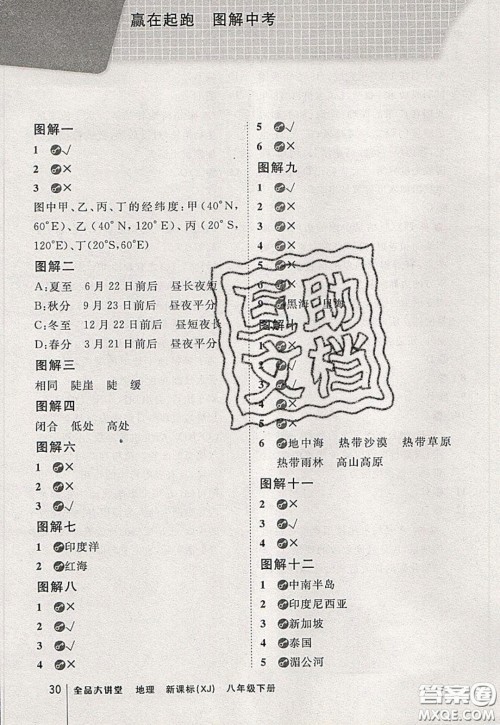 赢在起跑 图解中考
图解一
1 √
2 ×
3 ×
图中甲、乙、丙、丁的经纬度:甲(40°N,
60°E)、乙(40°N,120°E)、丙(20°S,
120°E)、丁(20°S,60°E)
图解二
A:夏至 6月22日前后 昼长夜短
B:秋分 9月23日前后 昼夜平分
C:冬至 12月22日前后 昼短夜长
D:春分 3月21日前后 昼夜平分
图解三
相同 陡崖 陡 缓
图解四
闭合 低处 高处
图解六
1 ×
2 √
3 √
4 ×
图解七
1 印度洋
2 红海
图解八
1 ×
2 √
3 √
4 ×
5 √
6 ×
图解九
1 √
2 √
3 ×
4 √
5 ×
6 ×
7 ×
8
9 黑海
图解十
1 ×
2
3 √
4
5 ×
6 地中海 热带沙漠 热带草原
热带雨林 高山高原
图解十一
1 ×
2 ×
3 √
4 ×
图解十二
1 中南半岛
2 印度尼西亚
3 新加坡
4 泰国
5 湄公河
互助
文档
30 全品大讲堂 地理 新课标(XJ) 八年级下册
答案圈
MXQE.COM